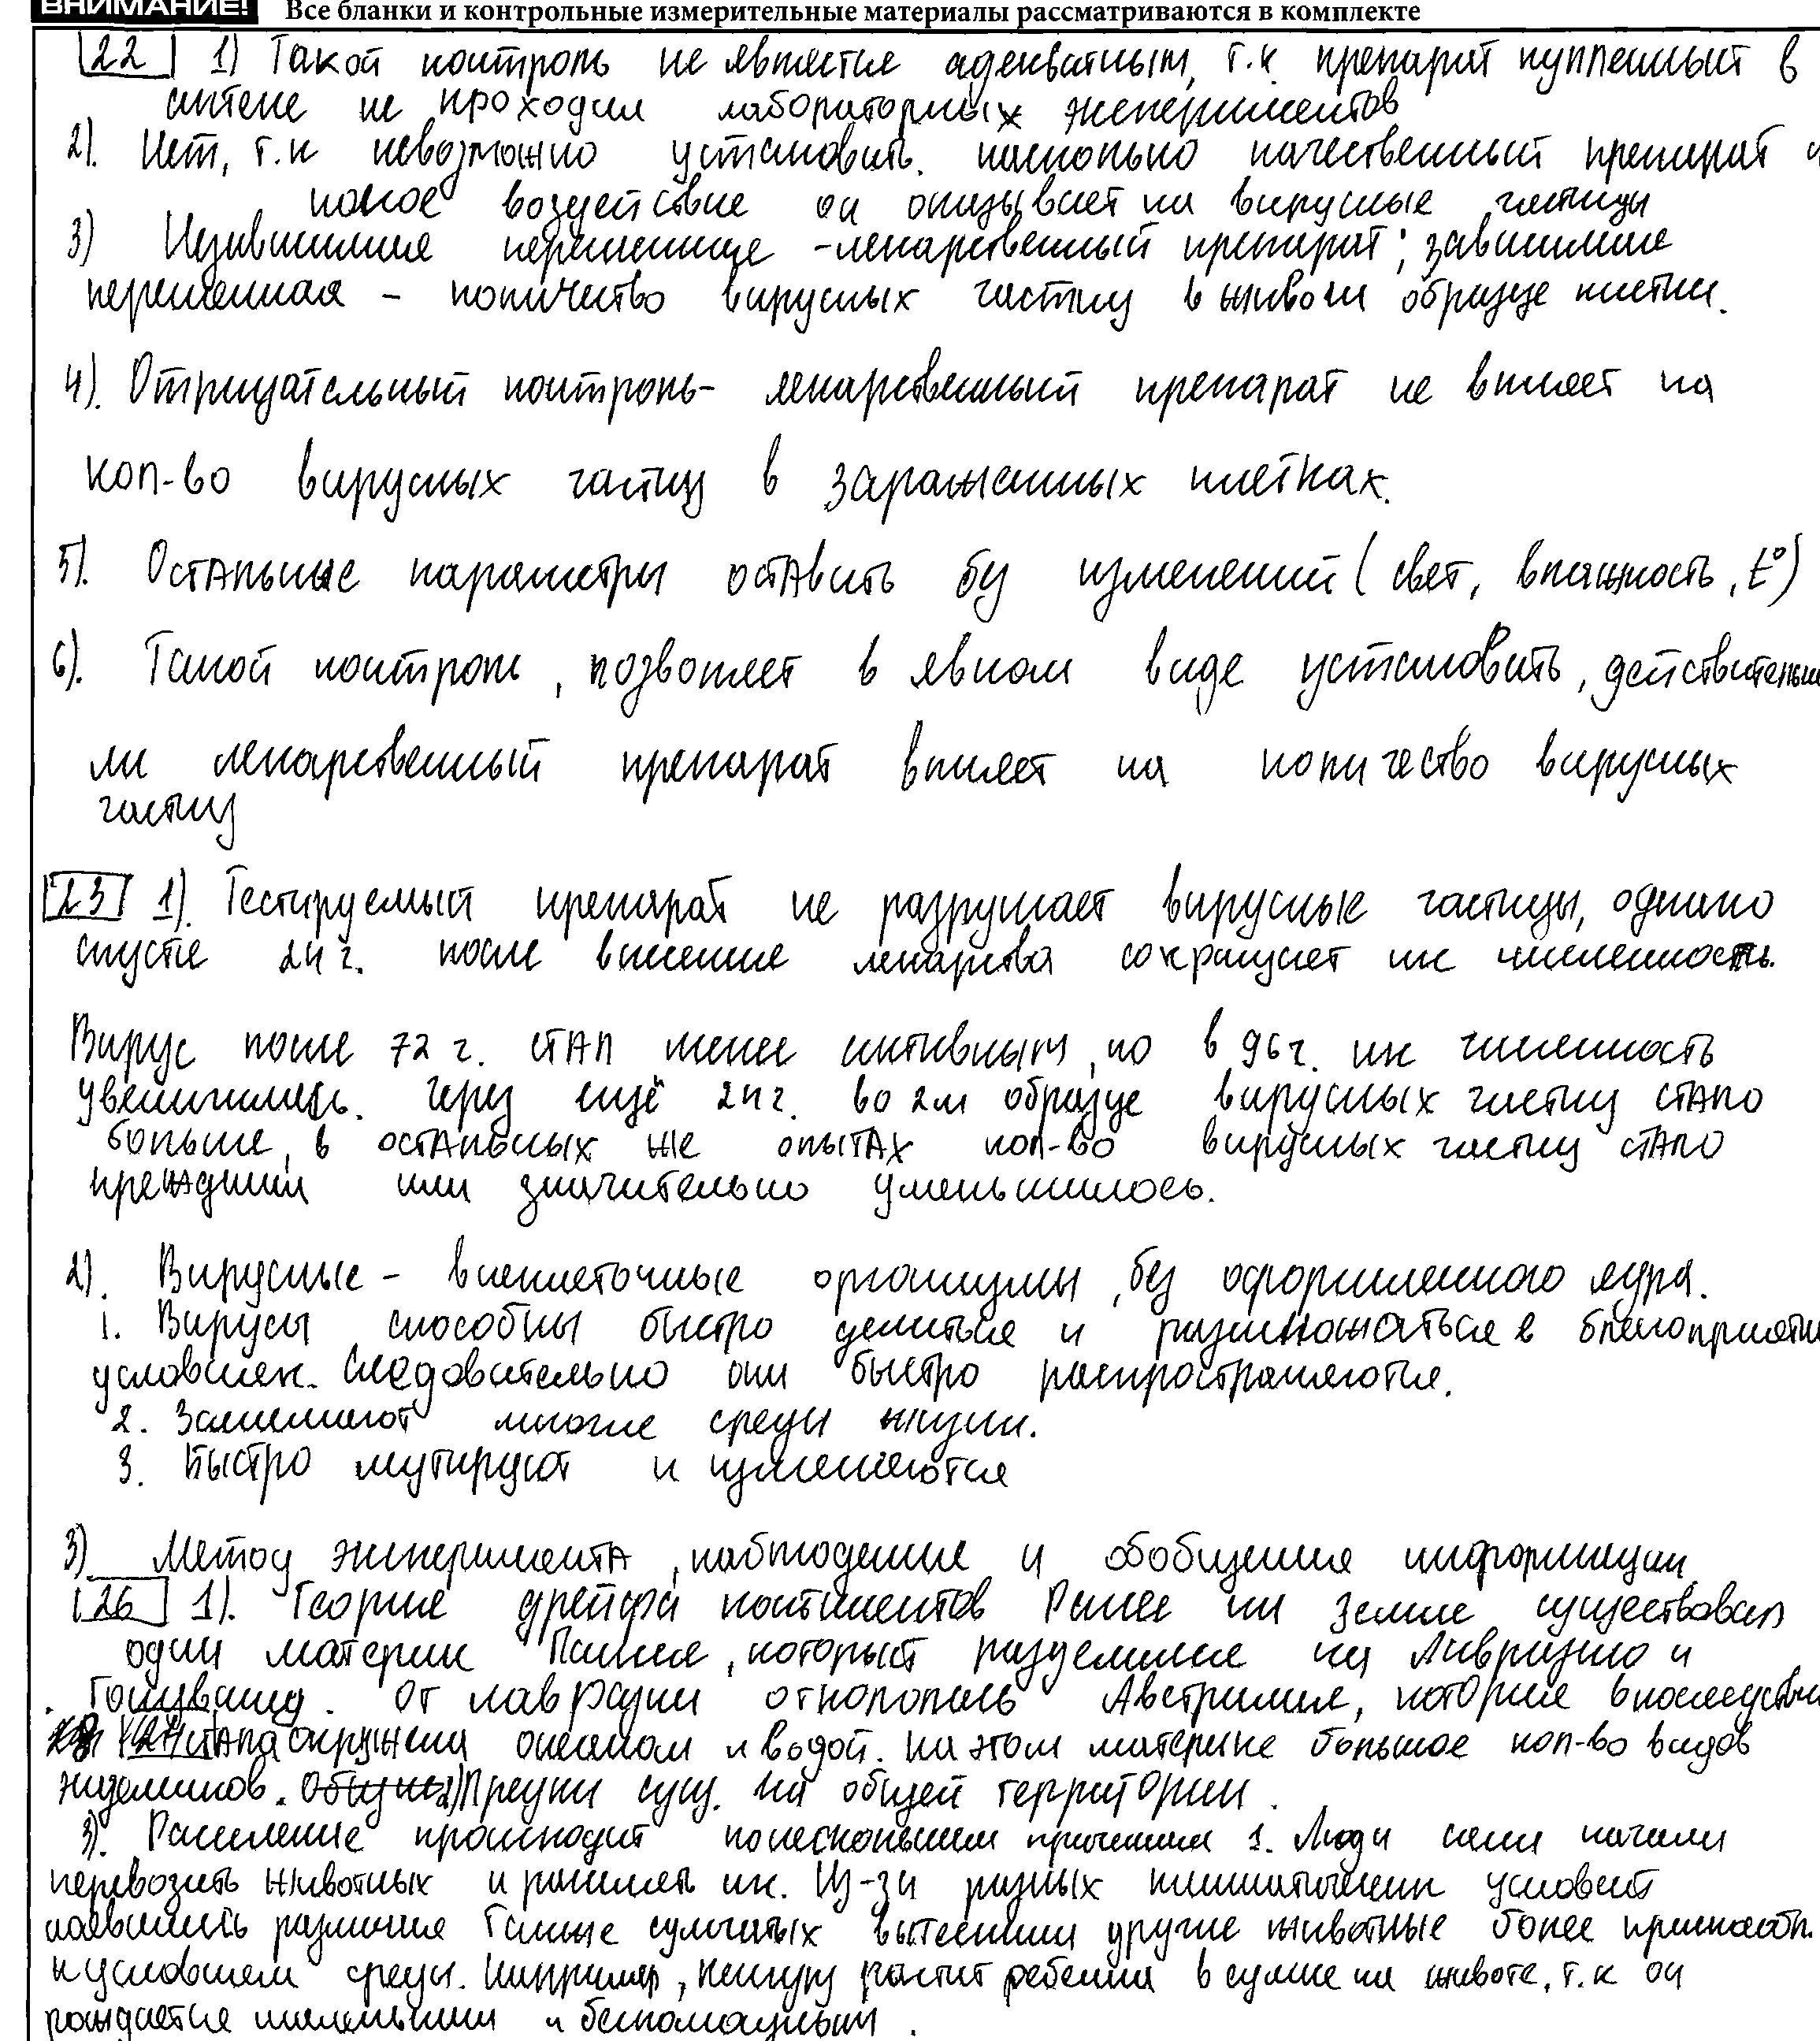 ВНИМАНИЕ! Все бланки и контрольные измерительные материалы рассматриваются в комплекте
22 1) Такой контроль не является адекватным, т.к. препарат купленный в
аптеке не проходил лабораторных экспериментов
2). Нет, т.к невозможно установить. насколько качественный препарат и
какое воздействие он оказывает на вирусные частицы
3) Независимая переменная - лекарственный препарат; зависимая
переменная - количество вирусных частиц в живом образце клетки.
4). Отрицательный контроль- лекарственный препарат не влияет на
кол-во вирусных частиц в зараженных клетках.
5). Остальные параметры оставить без изменений (свет, влажность, t°)
6). Такой контроль, позволяет в явном виде установить, действительно
ли лекарственный препарат влияет на количество вирусных
частиц
23 1). Тестируемый препарат не разрушает вирусные частицы, однако
спустя 24 ч. после внесения лекарства сокращает их численность.
Вирус после 72 ч. стал менее активным, но в 96 ч. их численность
увеличилась. Через ещё 24 ч. во 2м образце вирусных частиц стало
больше, в остальных же опытах кол-во вирусных частиц стало
прежним или значительно уменьшилось.
2). Вирусные - внеклеточные организмы, без оформленного ядра.
1. Вирусы способны быстро делиться и размножаться в благоприятн
условиях. Следовательно они быстро распространяются.
2. Занимают многие среды жизни.
3. Быстро мутируют и изменяются
3) Метод эксперимента, наблюдение и обобщения информации
26 1). Теория дрейфа континентов Ранее на Земле существовал
один материк Пангея, который разделился на Лавразию и
Гондвану. От Лавразии откололась Австралия, которая впоследстви
стала окружена океаном и водой. На этом материке большое кол-во видов
эндемиков. 2) Предки сущ. на общей территории.
3). Расселение происходит по нескольким причинам 1. Люди сами начали
перевозить животных и расселять их. Из-за разных климатических условий
появились различия Также сумчатых вытеснили другие животные более приспособл.
к условиям среды. Например, кенгуру растит ребенка в сумке на животе, т.к он
рождается маленьким и беспомощным.